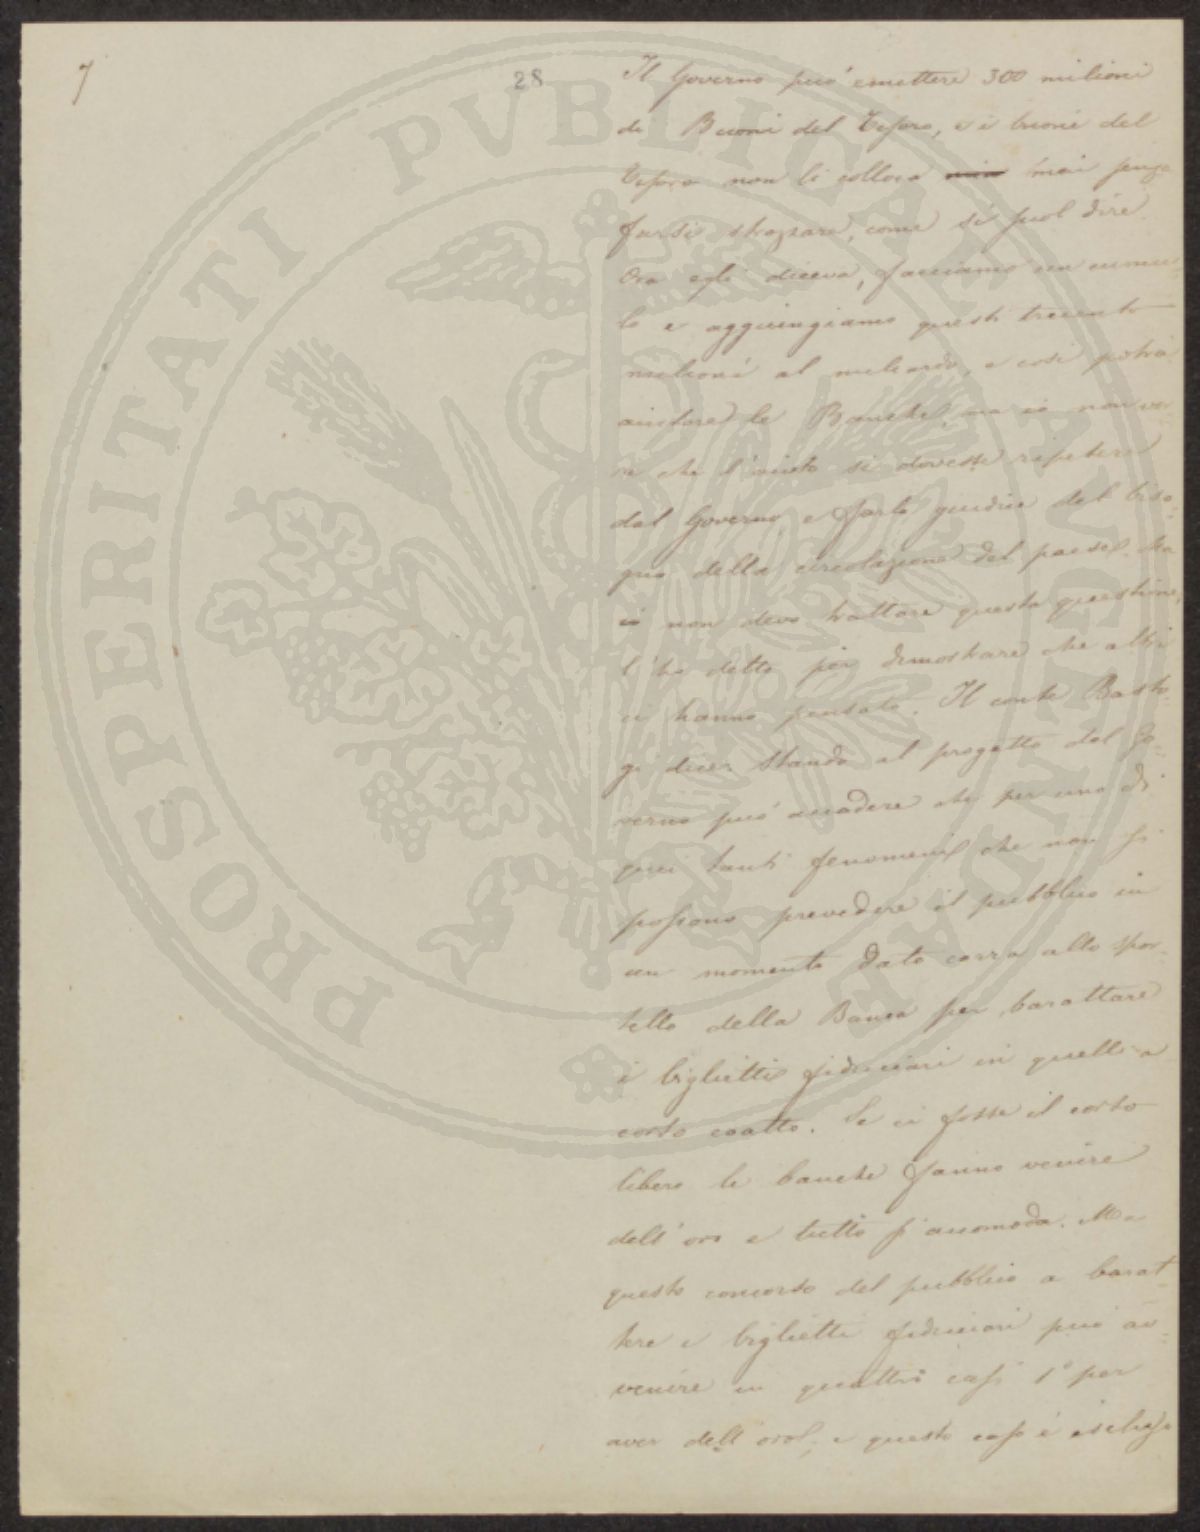 7
28
Il Governo può emettere 300 milioni
di Buoni del Tesoro, e i buoni del
Tesoro non li colloca mai senza
farsi strozzare, come si suol dire.
Ora egli diceva, facciamo un cumu-
lo e aggiungiamo questi trecento
milioni al miliardo, e così potrà
aiutare le Banche, ma io non vor-
rei che l'aiuto si dovesse ripetere
dal Governo e farlo giudice del biso-
gno della circolazione del paese. Ma
io non devo trattare questa questione,
l'ho detto per dimostrare che altri
ci hanno pensato. Il conte Basto-
gi dice: Stando al progetto del Go-
verno può accadere che per uno di
quei tanti fenomeni che non si
possono prevedere il pubblico in
un momento dato corra allo spor-
tello della Banca per barattare
i biglietti fiduciari in quelli a
corso coatto. Se ci fosse il corso
libero le banche fanno venire
dell'oro e tutto s'accomoda. Ma
questo concorso del pubblico a barat-
tare i biglietti fiduciari può av-
venire in quattro casi 1° per
aver dell'oro, e questo caso è escluso
PROSPERITATI PVBLICAE AVGENDAE